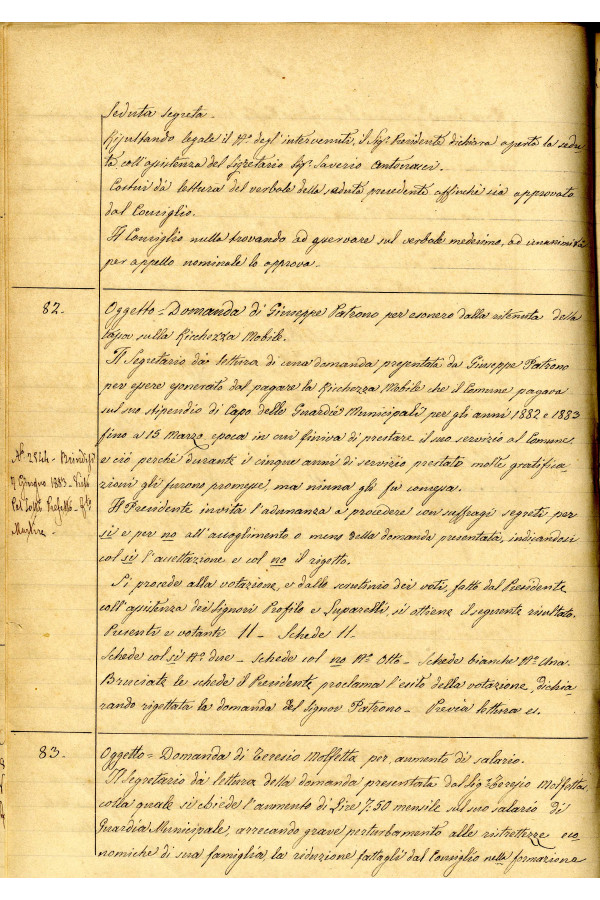 Seduta segreta -
Risultando legale il N.º degl'intervenuti, il Sig. Presidente dichiara aperta la sedu-
ta, coll'assistenza del Segretario Sig. Saverio
Costui dà lettura del verbale della seduta precedente affinchè sia approvato
dal Consiglio.
Il Consiglio nulla trovando ad osservare sul verbale medesimo, ad unanimità
per appello nominale lo approva -
82 -
Oggetto = Domanda di Giuseppe Patrono per esonero dalla ritenuta della
tassa sulla Ricchezza Mobile.
Il Segretario dà lettura di una domanda presentata da Giuseppe Patrono
per essere esonerato dal pagare la Ricchezza Mobile che il Comune pagava
sul suo stipendio di Capo delle Guardie Municipali per gli anni 1882 e 1883
fino a 15 Marzo, epoca in cui finiva di prestare il suo servizio al Comune,
e ciò perchè durante i cinque anni di servizio prestato molte gratifica-
zioni gli furono promesse ma niuna gli fu concessa.
Il Presidente invita l'adunanza a procedere con suffragi segreti per
sì e per no all'accoglimento o meno della domanda presentata, indicandosi
col sì l'accettazione e col no il rigetto.
Si procede alla votazione, e dallo scrutinio dei voti, fatto dal Presidente
coll'assistenza dei Signori Profilo e Luparelli, si ottiene il seguente risultato.
Presenti e votanti 11 - Schede 11 -
Schede col sì N.º due - schede col no N.º Otto - Schede bianche N.º Una.
Bruciate le schede il Presidente proclama l'esito della votazione, dichia-
rando rigettata la domanda del Signor Patrono - Previa lettura es.
N.º 2844 - Brindisi
7 Giugno 1883 - Visto
Pel Sotto Prefetto - f.to
83 -
Oggetto = Domanda di Teresio Molfetta per aumento di salario.
Il Segretario dà lettura della domanda presentata dal Sig. Teresio Molfetta
colla quale si chiede l'aumento di Lire 7,50 mensile sul suo salario di
Guardia Municipale, arrecando grave perturbamento alle ristrettezze eco-
nomiche di sua famiglia la riduzione fattagli dal Consiglio nella formazione